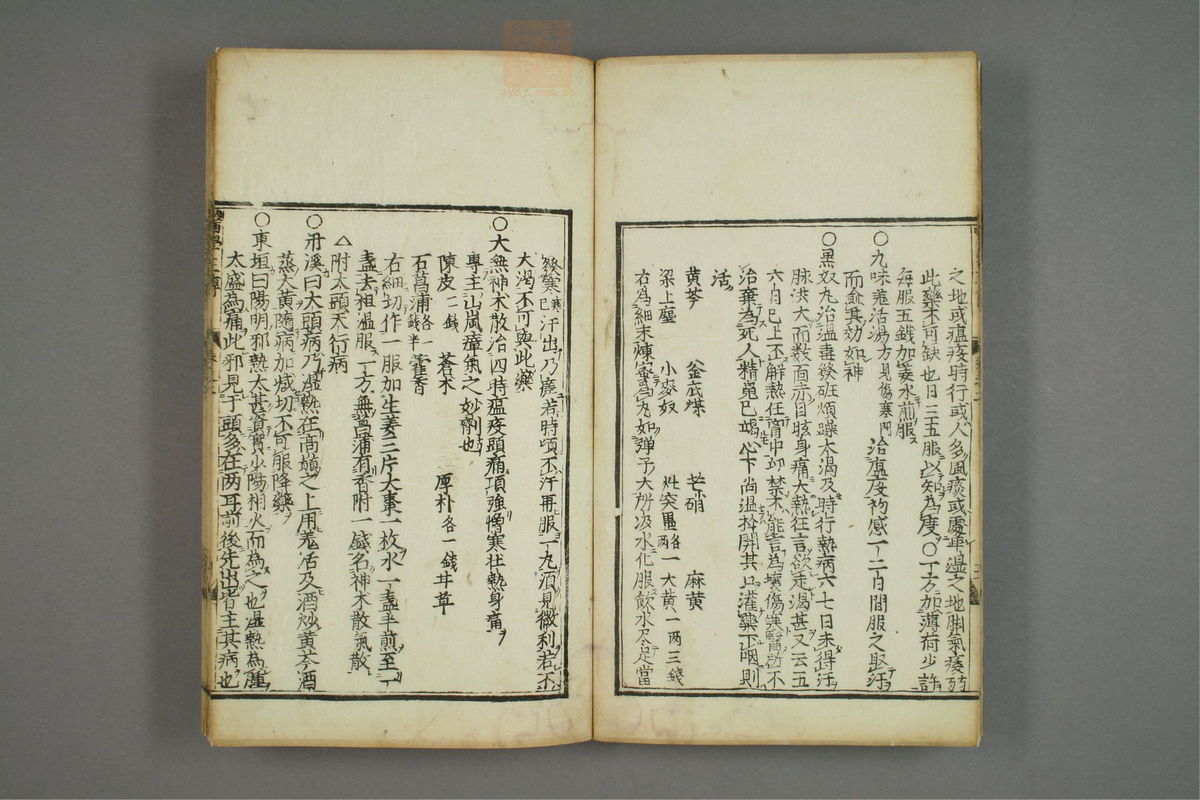 之地或瘟疫時行或人多風痰或處卑濕之地脚氣痿弱
此藥不可缺也日三五服以知為度○一方加薄荷少許
每服五錢加姜水煎服
○九味羗活湯方見傷寒門治瘟疫初感一二日間服之取汗
而愈其効如神
○黒奴丸治溫毒發斑煩躁大渴及時行熱病六七日未得汗
脉洪大而数面赤目眩身痛大熱狂言欲走渴甚又云五
六日已上不解熱在胷中口禁不能言為壊傷寒醫所不
治棄為死人精䰟已竭心下尚温拌開其口灌藥下咽則
活
黄芩 釜底煤 芒硝 麻黄
梁上塵 小麥奴 灶突墨各一兩 大黄一两三錢
右為細末煉蜜為丸如彈子大新汲水化服飲水尽足當
發寒寒已汗出乃瘥若時頃不汗再服一丸須見微利若不
大渴不可與此藥
○大無神术散治四時瘟疫頭痛項強憎寒壮熱身痛
專主山嵐瘴氣之妙劑也
陳皮二錢 蒼术 厚朴各一錢 甘草
石菖蒲各一錢半 藿香
右細切作一服加生姜三片大棗一枚水一盞半煎至一
盞去柤温服一方無菖蒲有香附一錢名神术散氣散
△附大頭天行病
○丹溪曰大頭病乃濕熱在高巔之上用羗活及酒炒黄芩酒
蒸大黄隨病加减切不可服降藥
○東垣曰陽明邪熱太甚資實少陽相火而為之也濕熱為腫
太盛為痛此邪見于頭多在两耳前後先出者主其病也